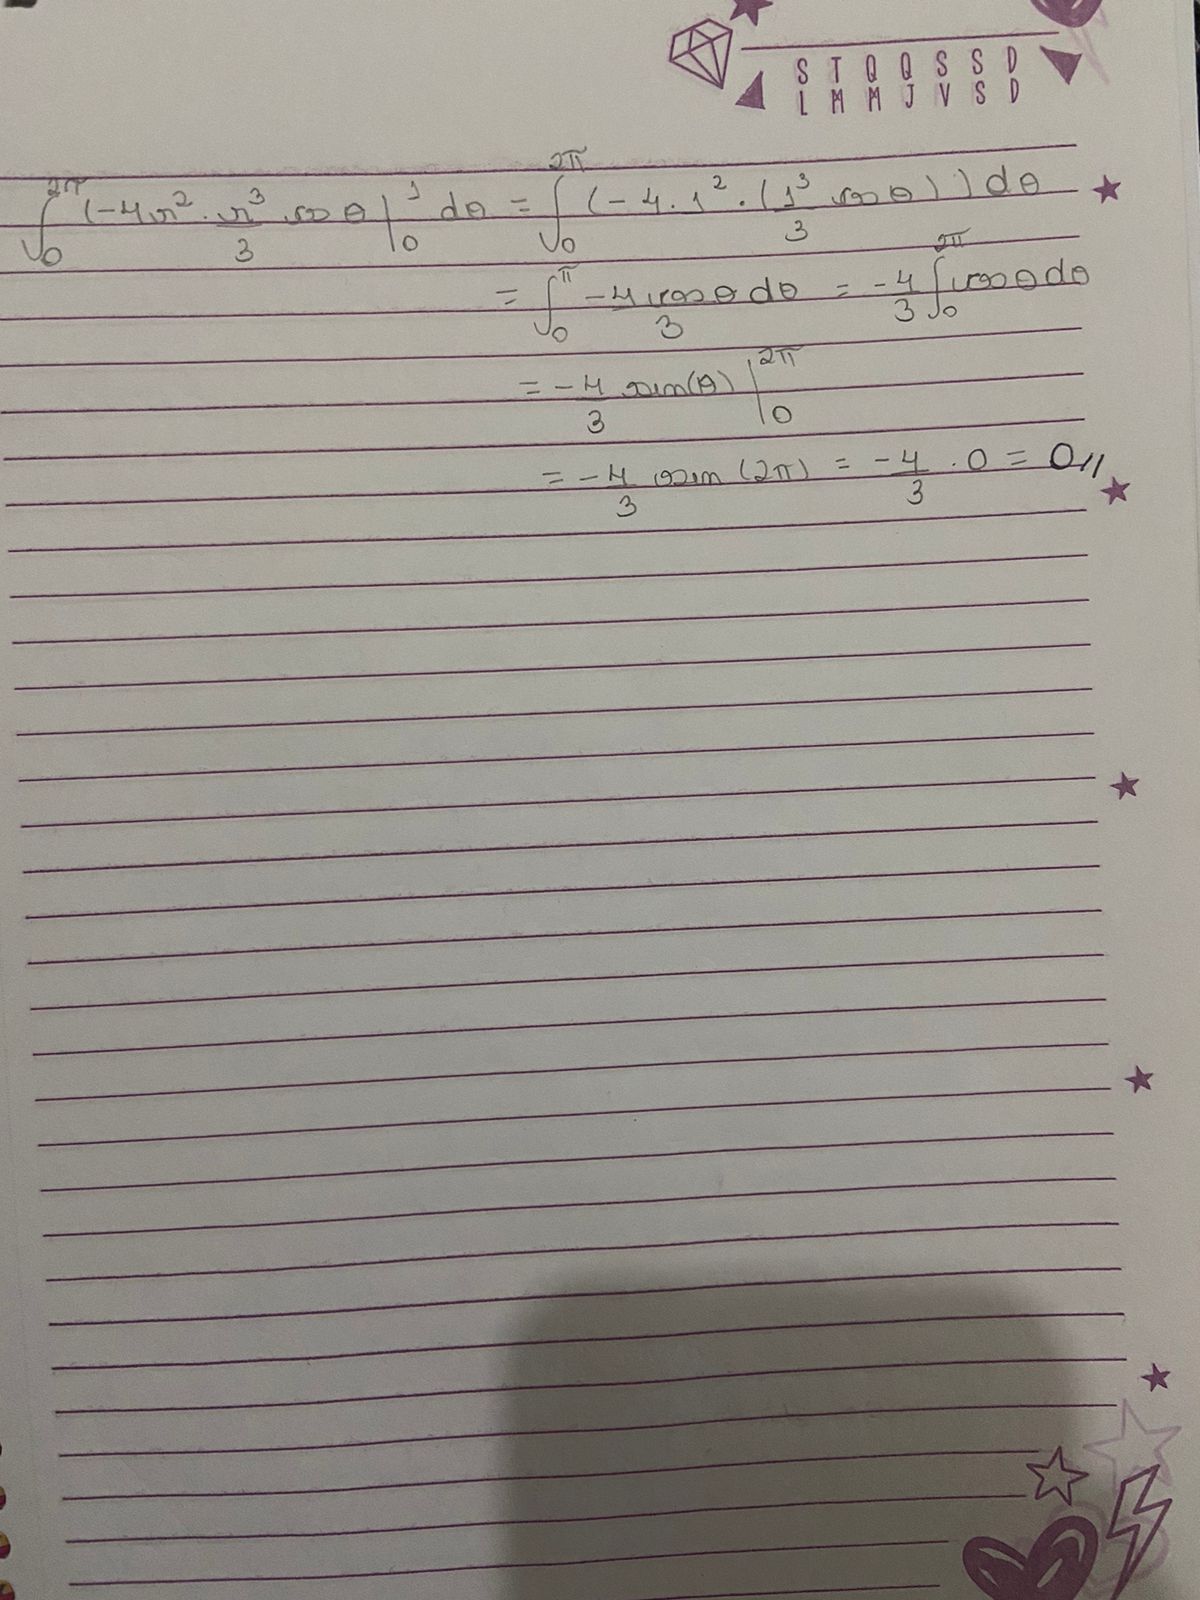 S T Q Q S S D
L M M J V S D
∫₀^2π (-4r² · r³/3 cos θ |₀^1 dθ = ∫₀^2π (-4 · 1² · (1³/3 cos θ)) dθ
= ∫₀^π -4 cos θ/3 dθ = -4/3 ∫₀^2π cos θ dθ
= -4/3 sen(θ) |₀^2π
= -4/3 sen (2π) = -4/3 · 0 = 0//